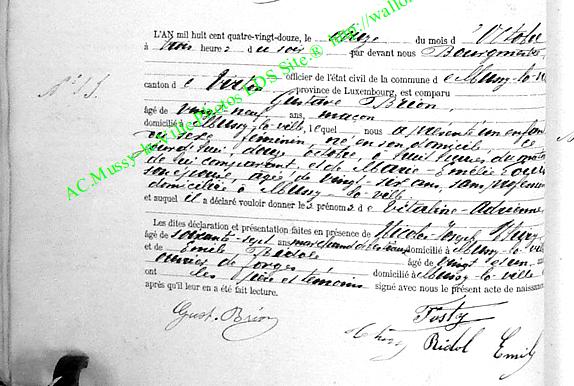 L'AN mil huit cent quatre-vingt-douze, le douze du mois d'Octobre
à trois heures de soir par devant nous Bourgmestre
officier de l'état civil de la commune de Mussy-la-ville
canton de Virton province de Luxembourg, est comparu
N° 15.
Gustave Brion,
âgé de vingt neuf ans, maçon
domicilié à Mussy-la-ville, lequel nous a présenté un enfant
de sexe féminin, né en son domicile ce
jourd'hui douze octobre, à huit heures du matin
de lui comparant et de Marie Emélie
son épouse, agée de vingt-six ans, sans profession
domiciliée à Mussy-la-ville
et auquel il a déclaré vouloir donner les prénoms de Vitaline-Adrienne
Les dites déclaration et présentation faites en présence de Nicolas Joseph Thiry
âgé de soixante-sept ans marchand domicilié à Mussy-la-ville
et de Emile Ridol âgé de vingt et un ans
ouvrier de forges domicilié à Mussy-la-ville
ont les père et témoins signé avec nous le présent acte de naissance
après qu'il leur en a été fait lecture.
Gust. Brion
Fosty
Thiry Ridol Emily
AC.Mussy-la-Ville.Photos EDS Site.® http://wallo